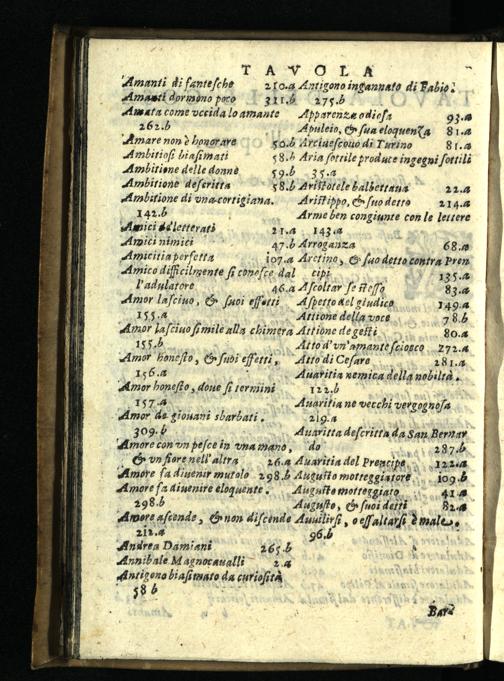 TAVOLA
Amanti di fantesche 210.a
Amanti dormono poco 311.b
Amata come vccida lo amante
262.b
Amare non è honorare 50.b
Ambitiosi biasimati 58.b
Ambitione delle donne 59.b
Ambitione descritta 58.b
Ambitione di vna cortigiana.
142.b
Amici literati 21.a
Amici nimici 47.b
Amicitia perfetta 107.a
Amico difficilmente si conosce dal
l'adulatore 46.a
Amor lasciuo, & suoi effetti
155.a
Amor lasciuo simile alla chimera
155.b
Amor honesto, & suoi effetti.
156.a
Amor honesto, doue si termini
157.a
Amor de giouani sbarbati.
309.b
Amore con vn pesce in vna mano,
& vn fiore nell'altra 26.a
Amore fa diuenir mutolo 298.b
Amore fa diuenire eloquente.
298.b
Amore ascende, & non discende
212.a
Andrea Damiani 265.b
Annibale Magnocaualli 2.a
Antigono biasimato da curiosità
58.b
Antigono ingannato di Fabio.
275.b
Apparenza odiosa 93.a
Apuleio, & sua eloquenza 81.a
Arciuescouo di Turino 81.a
Aria sottile produce ingegni sottili
35.a
Aristotele balbettaua 22.a
Aristippo, & suo detto 214.a
Arme ben congiunte con le lettere
143.a
Arroganza 68.a
Aretino, & suo detto contra Pren
cipi 135.a
Ascoltar se stesso 83.a
Aspetto del giudice 149.a
Attione della voce 78.b
Attione de gesti 80.a
Atto d'vn'amante sciocco 272.a
Atto di Cesare 281.a
Auaritia nemica della nobiltà.
122.b
Auaritia ne vecchi vergognosa
219.a
Auaritta descritta da San Bernar
do 287.b
Auaritia del Prencipe 122.a
Augusto motteggiatore 109.b
Augusto motteggiato 41.a
Augusto, & suoi detti 82.a
Auuilirsi, o essaltarsi è male.
96.b